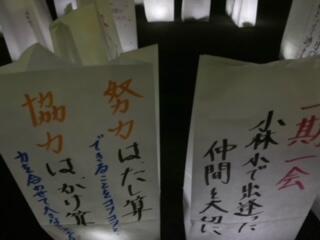 努力はたし算
できることをコツコツと
協力はかけ算
力を合わせて大きな
一期一会
小林小で出逢った
仲間を大切に